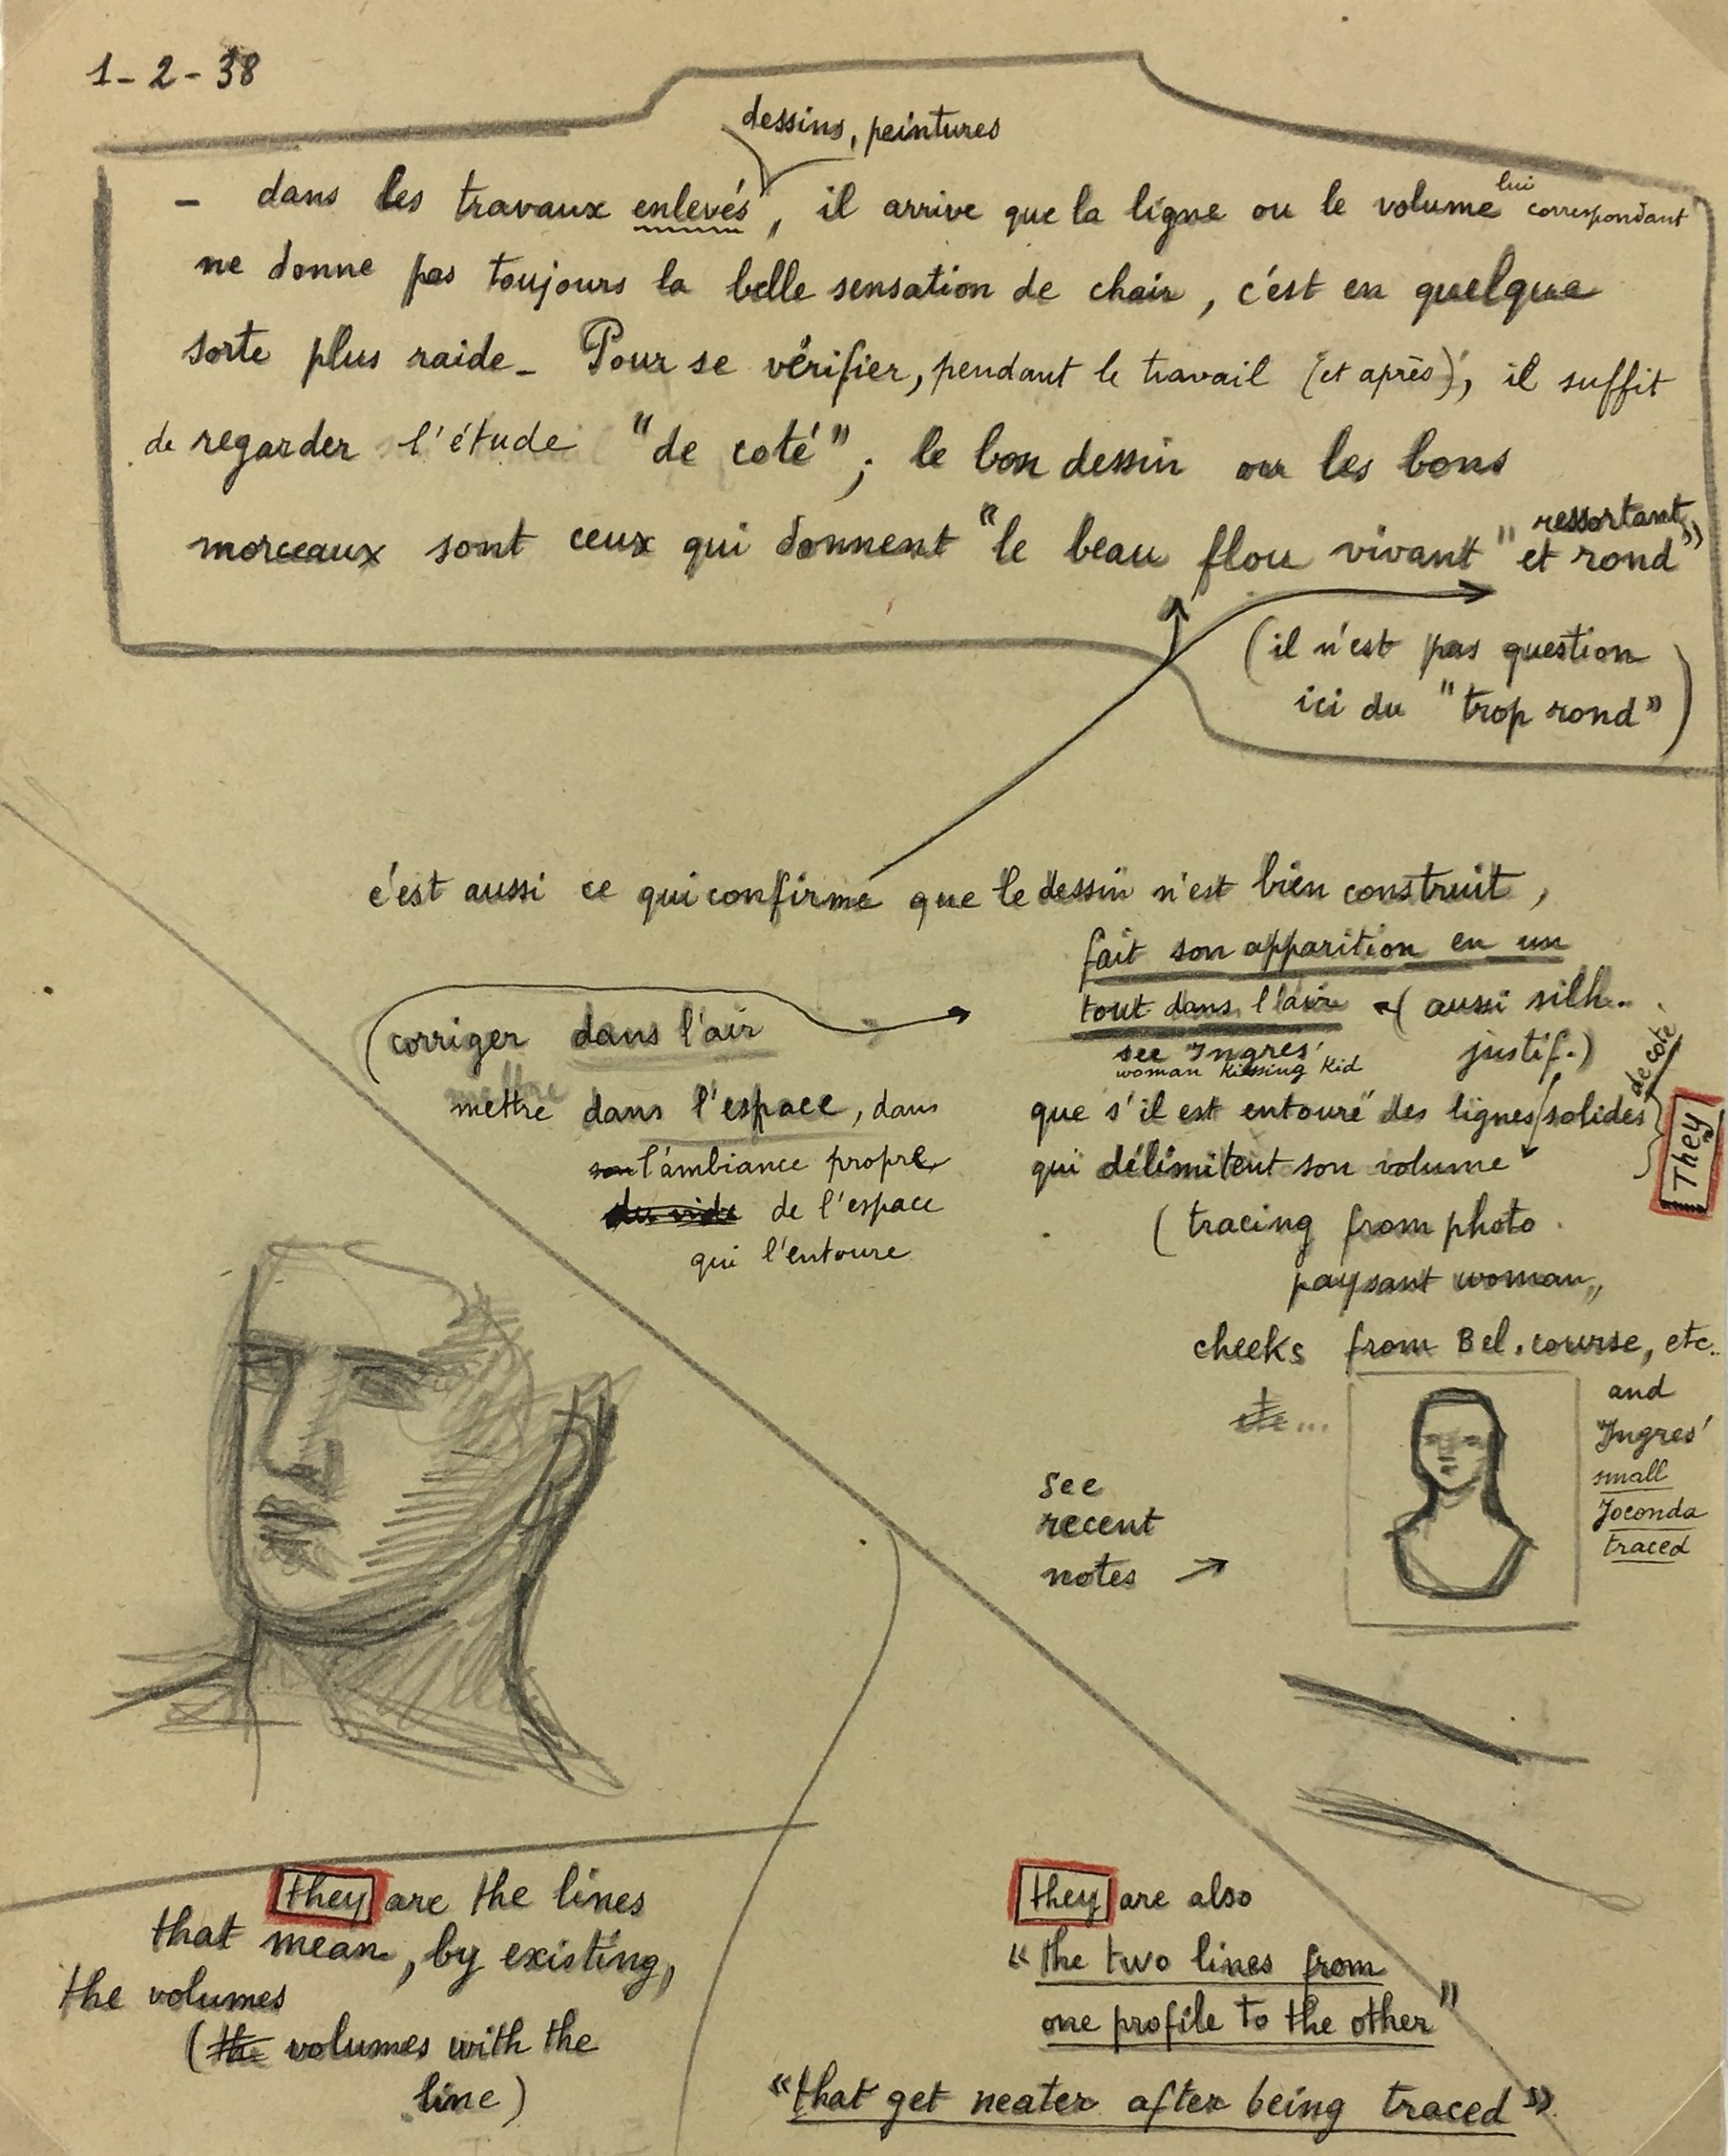 1-2-38
dessins, peintures
- dans les travaux enlevés, il arrive que la ligne ou le volume lui correspondant
ne donne pas toujours la belle sensation de chair, c'est en quelque
sorte plus raide_ Pour se vérifier, pendant le travail (et après), il suffit
de regarder l'étude "de coté"; le bon dessin ou les bons
morceaux sont ceux qui donnent "le beau flou vivant" ressortant
et rond"
(il n'est pas question
ici du "trop rond")
c'est aussi ce qui confirme que le dessin n'est bien construit,
fait son apparition en un
tout dans l'air (aussi silh.
justif.)
see Ingres'
woman kissing kid
(corriger dans l'air
mettre
mettre dans l'espace, dans
son l'ambiance propre
du vide de l'espace
qui l'entoure
que s'il est entouré des lignes solides
de coté
They
qui délimitent son volume
(tracing from photo
paysant woman,,
cheeks from Bel. course, etc..
etc...
and
Ingres'
small
Joconda
traced
see
recent
notes →
they are the lines
that mean, by existing,
the volumes
(the volumes with the
line)
they are also
"the two lines from
one profile to the other"
"that get neater after being traced"